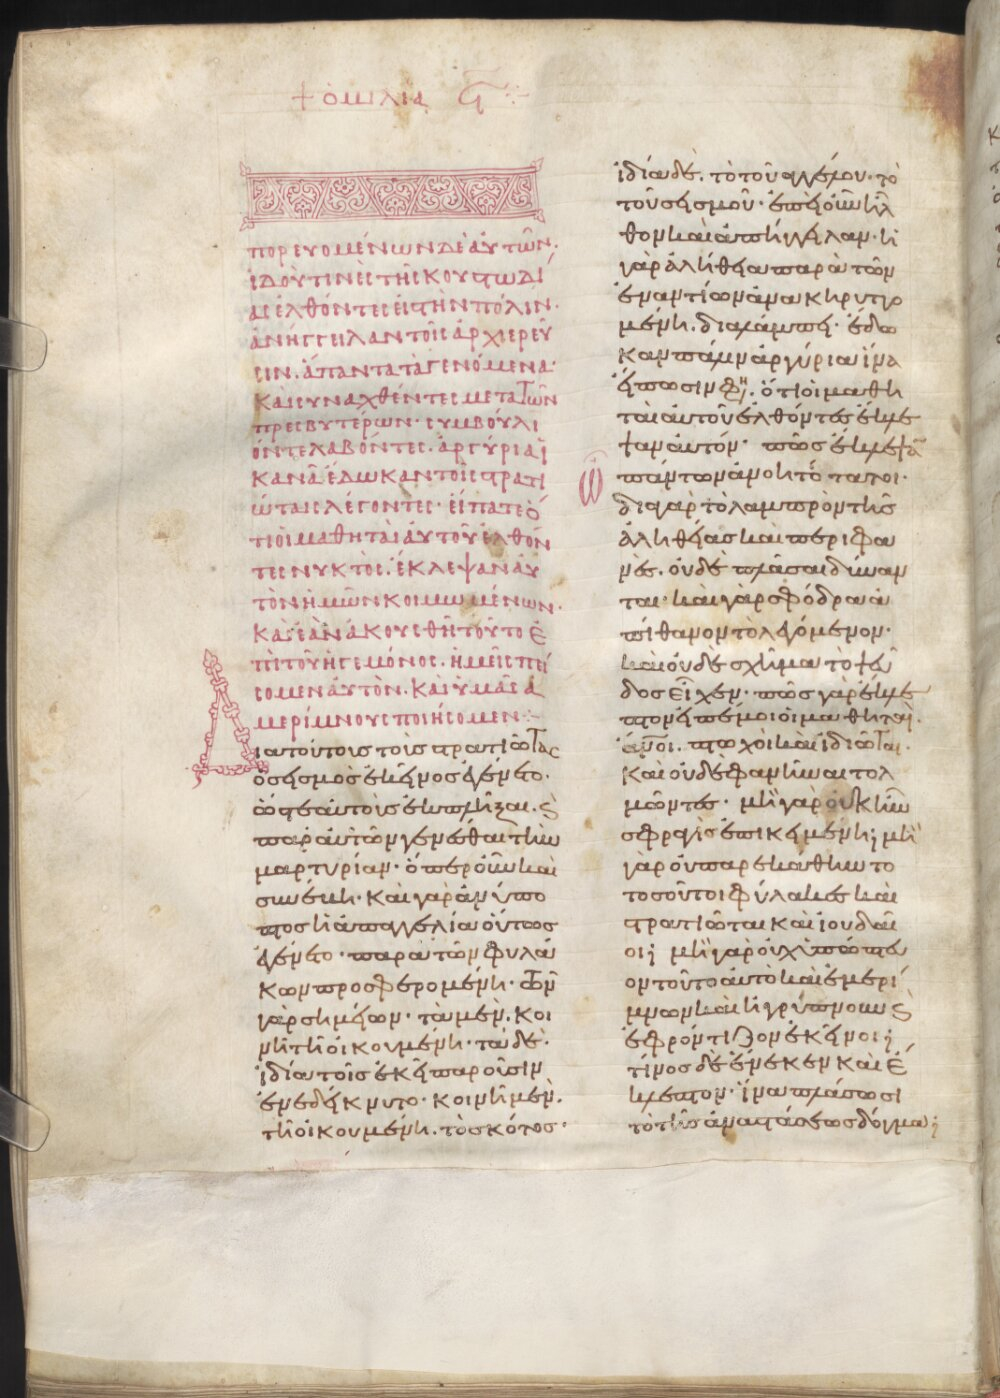 + ὁμιλία Ϟ
πορευομένων δὲ αὐτῶν.
ἰδού τινὲς τῆς κουστωδί
ας ἐλθόντες εἰς τὴν πόλιν.
ἀνήγγειλαν τοῖς ἀρχιερεῦ
σιν. ἅπαντα τὰ γενόμενα·
καὶ συναχθέντες μετὰ τῶν
πρεσβυτέρων· συμβούλι
όν τε λαβόντες. ἀργύρια ἱ
κανὰ ἔδωκαν τοῖς στρατι
ώταις λέγοντες· εἴπατε ὅ
τι οἱ μαθηταὶ αὐτοῦ ἐλθόν
τες νυκτὸς. ἔκλεψαν αὐ
τὸν ἡμῶν κοιμωμένων.
καὶ ἐὰν ἀκουσθῇ τοῦτο ἐ
πὶ τοῦ ἡγεμόνος. ἡμεῖς πεί
σομεν αὐτὸν. καὶ ὑμᾶς ἀ
μερίμνους ποιήσομεν·
Δια τούτοις τοὺς στρατιώτας
ὁ σεισμὸς ἐκεῖνος ἐγένετο.
ὥστε αὐτοὺς ἐκπλῆξαι. καὶ
παρ' αὐτῶν γενέσθαι τὴν
μαρτυρίαν· ὅπερ οὖν καὶ
συνέβη· καὶ γὰρ ἀνύπο
πτος ἡ ἀπαγγελία οὕτως
ἐγένετο· παρὰ τῶν φυλά
κων προσφερομένη· τῶν
γὰρ σημείων· τὰ μὲν. κοι
νῇ τῇ οἰκουμένῃ· τὰ δὲ.
ἰδίᾳ τοῖς ἐκεῖ παροῦσιν
ἐνεδείκνυτο· κοινῇ μὲν.
τῇ οἰκουμένῃ. τὸ σκότος·
ἰδίᾳ δὲ. τὸ τοῦ ἀγγέλου· τὸ
τοῦ σεισμοῦ· ἐπεὶ οὖν ἦλ
θον καὶ ἀπήγγειλαν· ἡ
γὰρ ἀλήθεια παρὰ τῶν
ἐναντίων ἀνακηρυττο
μένη. διαλάμπει· ἔδω
καν πάλιν ἀργύρια ἵνα
εἴπωσιν φη. ὅτι οἱ μαθη
ταὶ αὐτοῦ ἐλθόντες ἔκλε
ψαν αὐτόν· πῶς ἔκλεψαν
ὦ πάντων ἀνοητότατοι·
διὰ γὰρ τὸ λαμπρὸν τῆς
ἀληθείας καὶ περιφα
νὲς. οὐδὲ πλάσαι δύναν
ται· καὶ γὰρ σφόδρα ἀ
πίθανον τὸ λεγόμενον·
καὶ οὐδὲ σχῆμα τὸ ψεῦ
δος εἶχεν· πῶς γὰρ ἔκλε
πτον εἰπέ μοι οἱ μαθηταί.
ἄνοι. πτωχοὶ καὶ ἰδιῶται.
καὶ οὐδὲ φανῆναι τολ
μῶντες· μὴ γὰρ οὐκ ἦν
σφραγὶς ἐπικειμένη; μὴ
γὰρ οὐ παρεκάθηντο
τοσοῦτοι φύλακες καὶ
στρατιῶται καὶ ἰουδαῖ
οι; μὴ γὰρ οὐχ ὑπώπτευ
ον τοῦτο αὐτὸ καὶ ἐμερί
μνων καὶ ἠγρύπνουν καὶ
ἐφρόντιζον ἐκεῖνοι;
τίνος δὲ ἕνεκεν καὶ ἔ
κλεπτον· ἵνα πλάσωσι
τὸ τῆς ἀναστάσεως δόγμα;